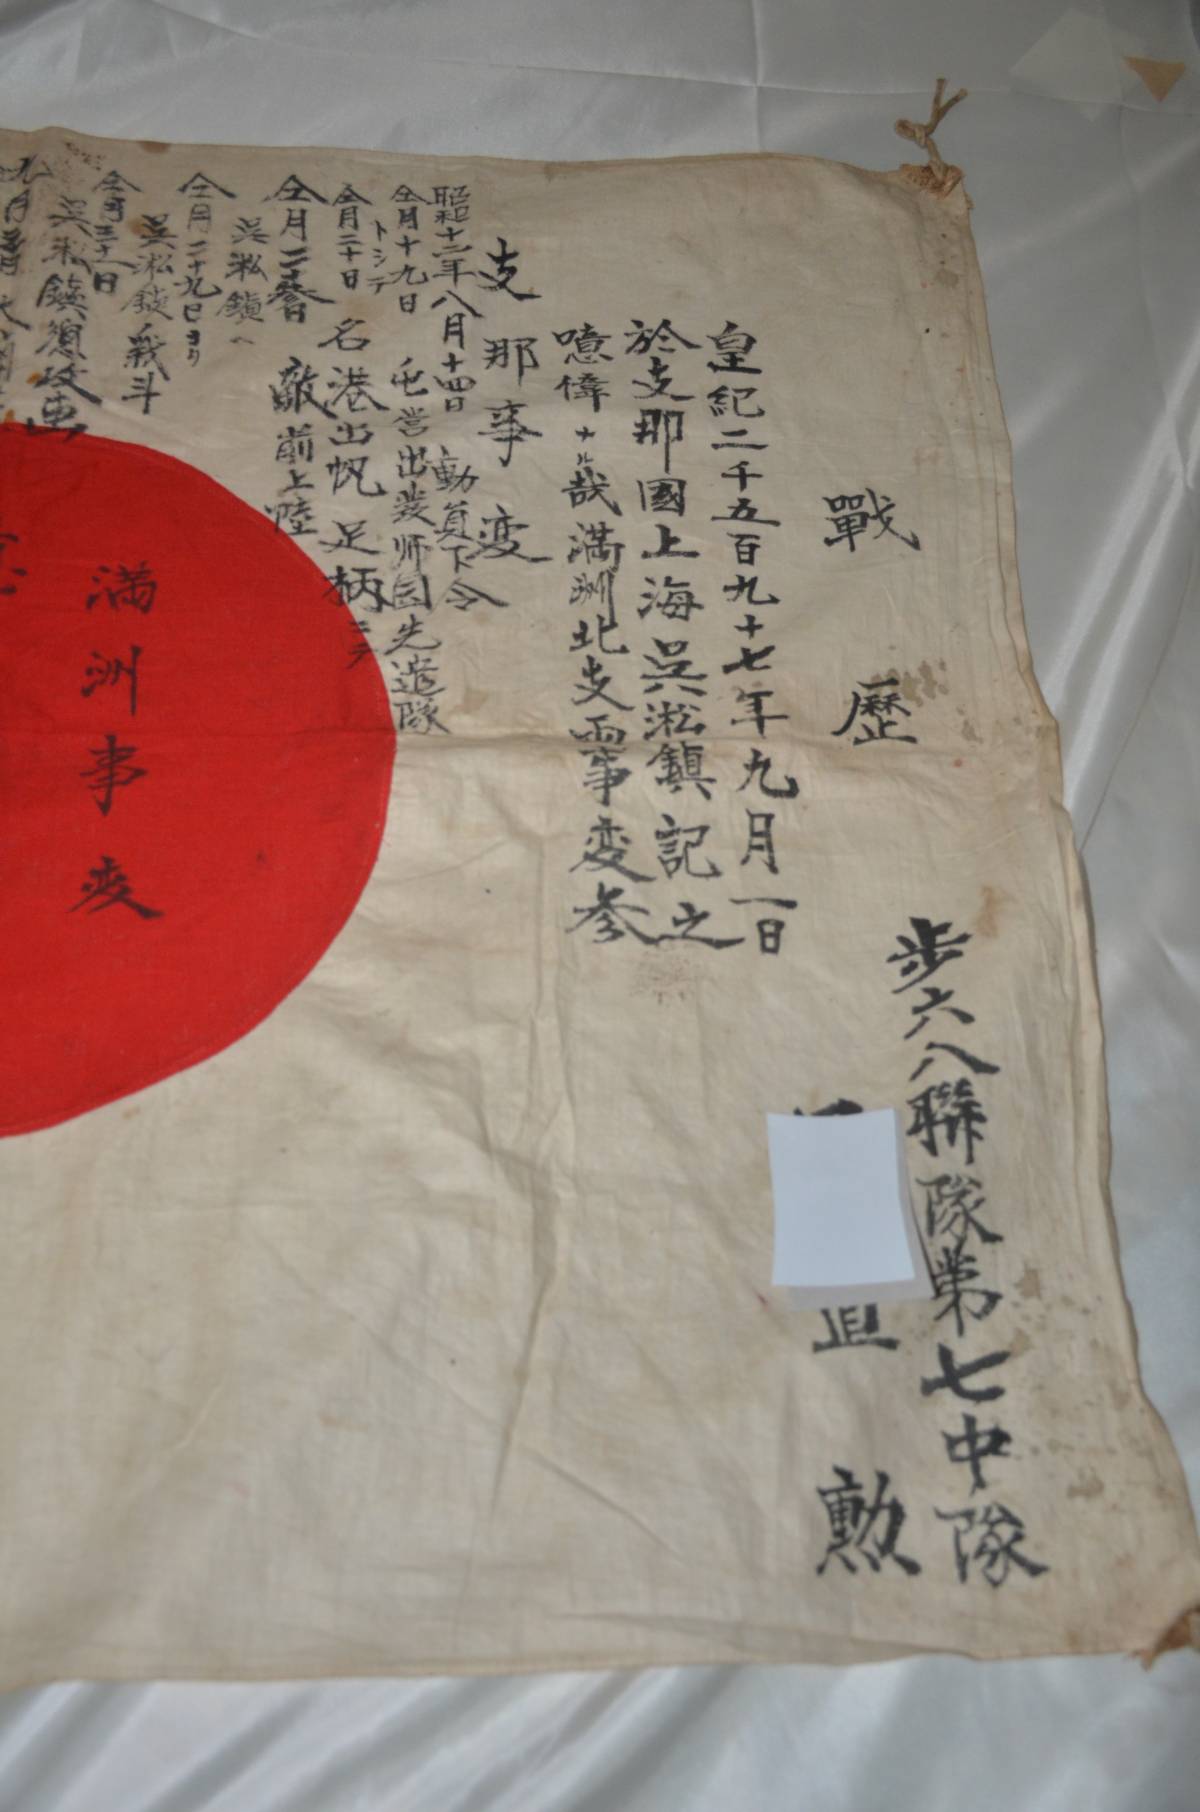 戰歷
歩六八聯隊第七中隊
直勲
皇紀二千五百九十七年九月一日
於支那國上海呉淞鎮記之
噫偉ナル哉満洲北支両事変参
支那事変
昭和十二年八月十四日 動員下令
仝月十九日 屯営出発师团先遣隊
トシテ
仝月二十日 名港出帆足柄ニテ
仝月二十三日 敵前上陸
呉淞鎮へ
仝月二十九日ヨリ
呉淞鎮戦斗
仝月三十一日
呉淞鎮総攻撃
九月
満洲事变